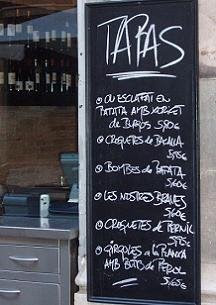 TAPAS
OU ESCLAFAT EN
PATATA AMB XORIÇ
de BURGOS 5,80€
CROQUETES de BACALLÀ
5,95€
BOMBES de PATATA
5,60€
LES NOSTRES BRAVES
5,60€
CROQUETES de PERNIL
5,95€
GÍRGOLES a la PLANXA
AMB BITS de PERNIL
5,60€